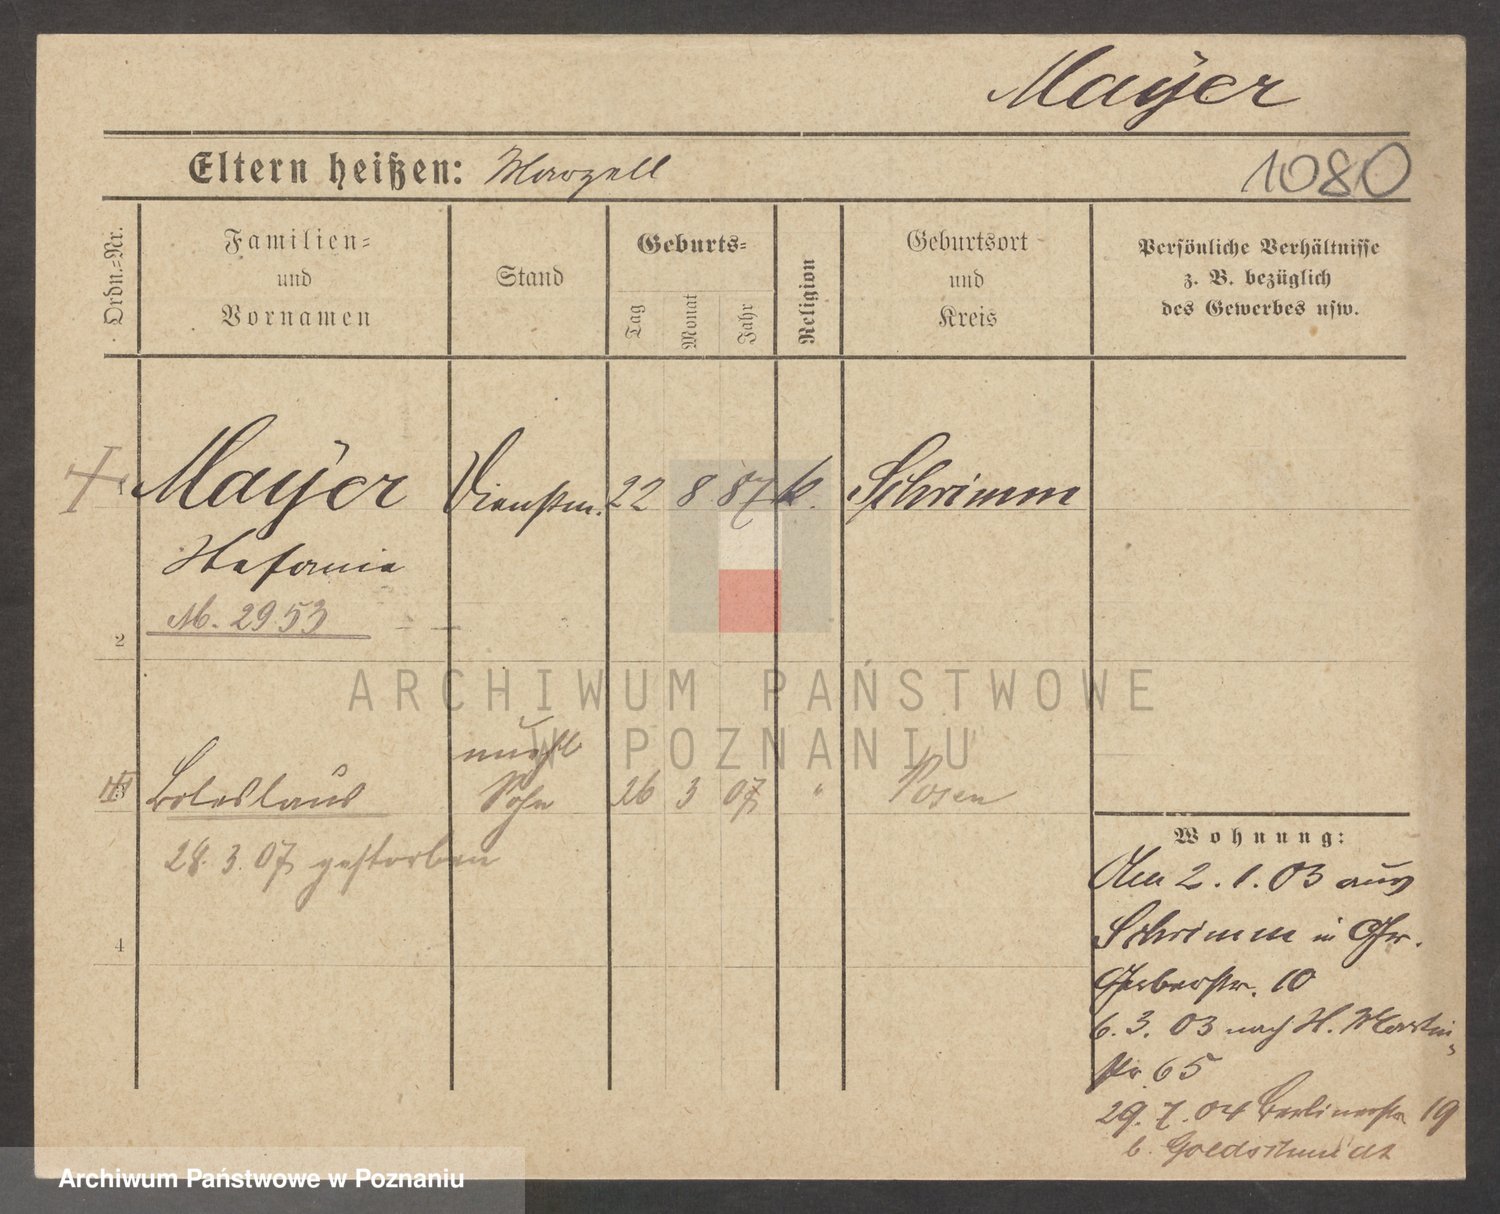 Mayer
Eltern heißen: Marzell
1080
Ordn.-Nr.
Familien-
und
Vornamen
Stand
Geburts-
Tag
Monat
Jahr
Religion
Geburtsort
und
Kreis
Persönliche Verhältnisse
z. B. bezüglich
des Gewerbes usw.
1 Mayer Dienstm. 22 8 87 k. Schrimm
Stefania
M. 2953
2
ARCHIWUM PAŃSTWOWE
W POZNANIU
unehl
3 Boleslaus Sohn 26 3 07 " Posen
28. 3. 07 gestorben
4
Wohnung:
Am 2. 1. 03 aus
Schrimm in
Gerberstr. 10
6. 3. 03 nach St. Martin-
str 65
29. 7. 04 Berlinerstr 19
b. Goldschmidt
Archiwum Państwowe w Poznaniu